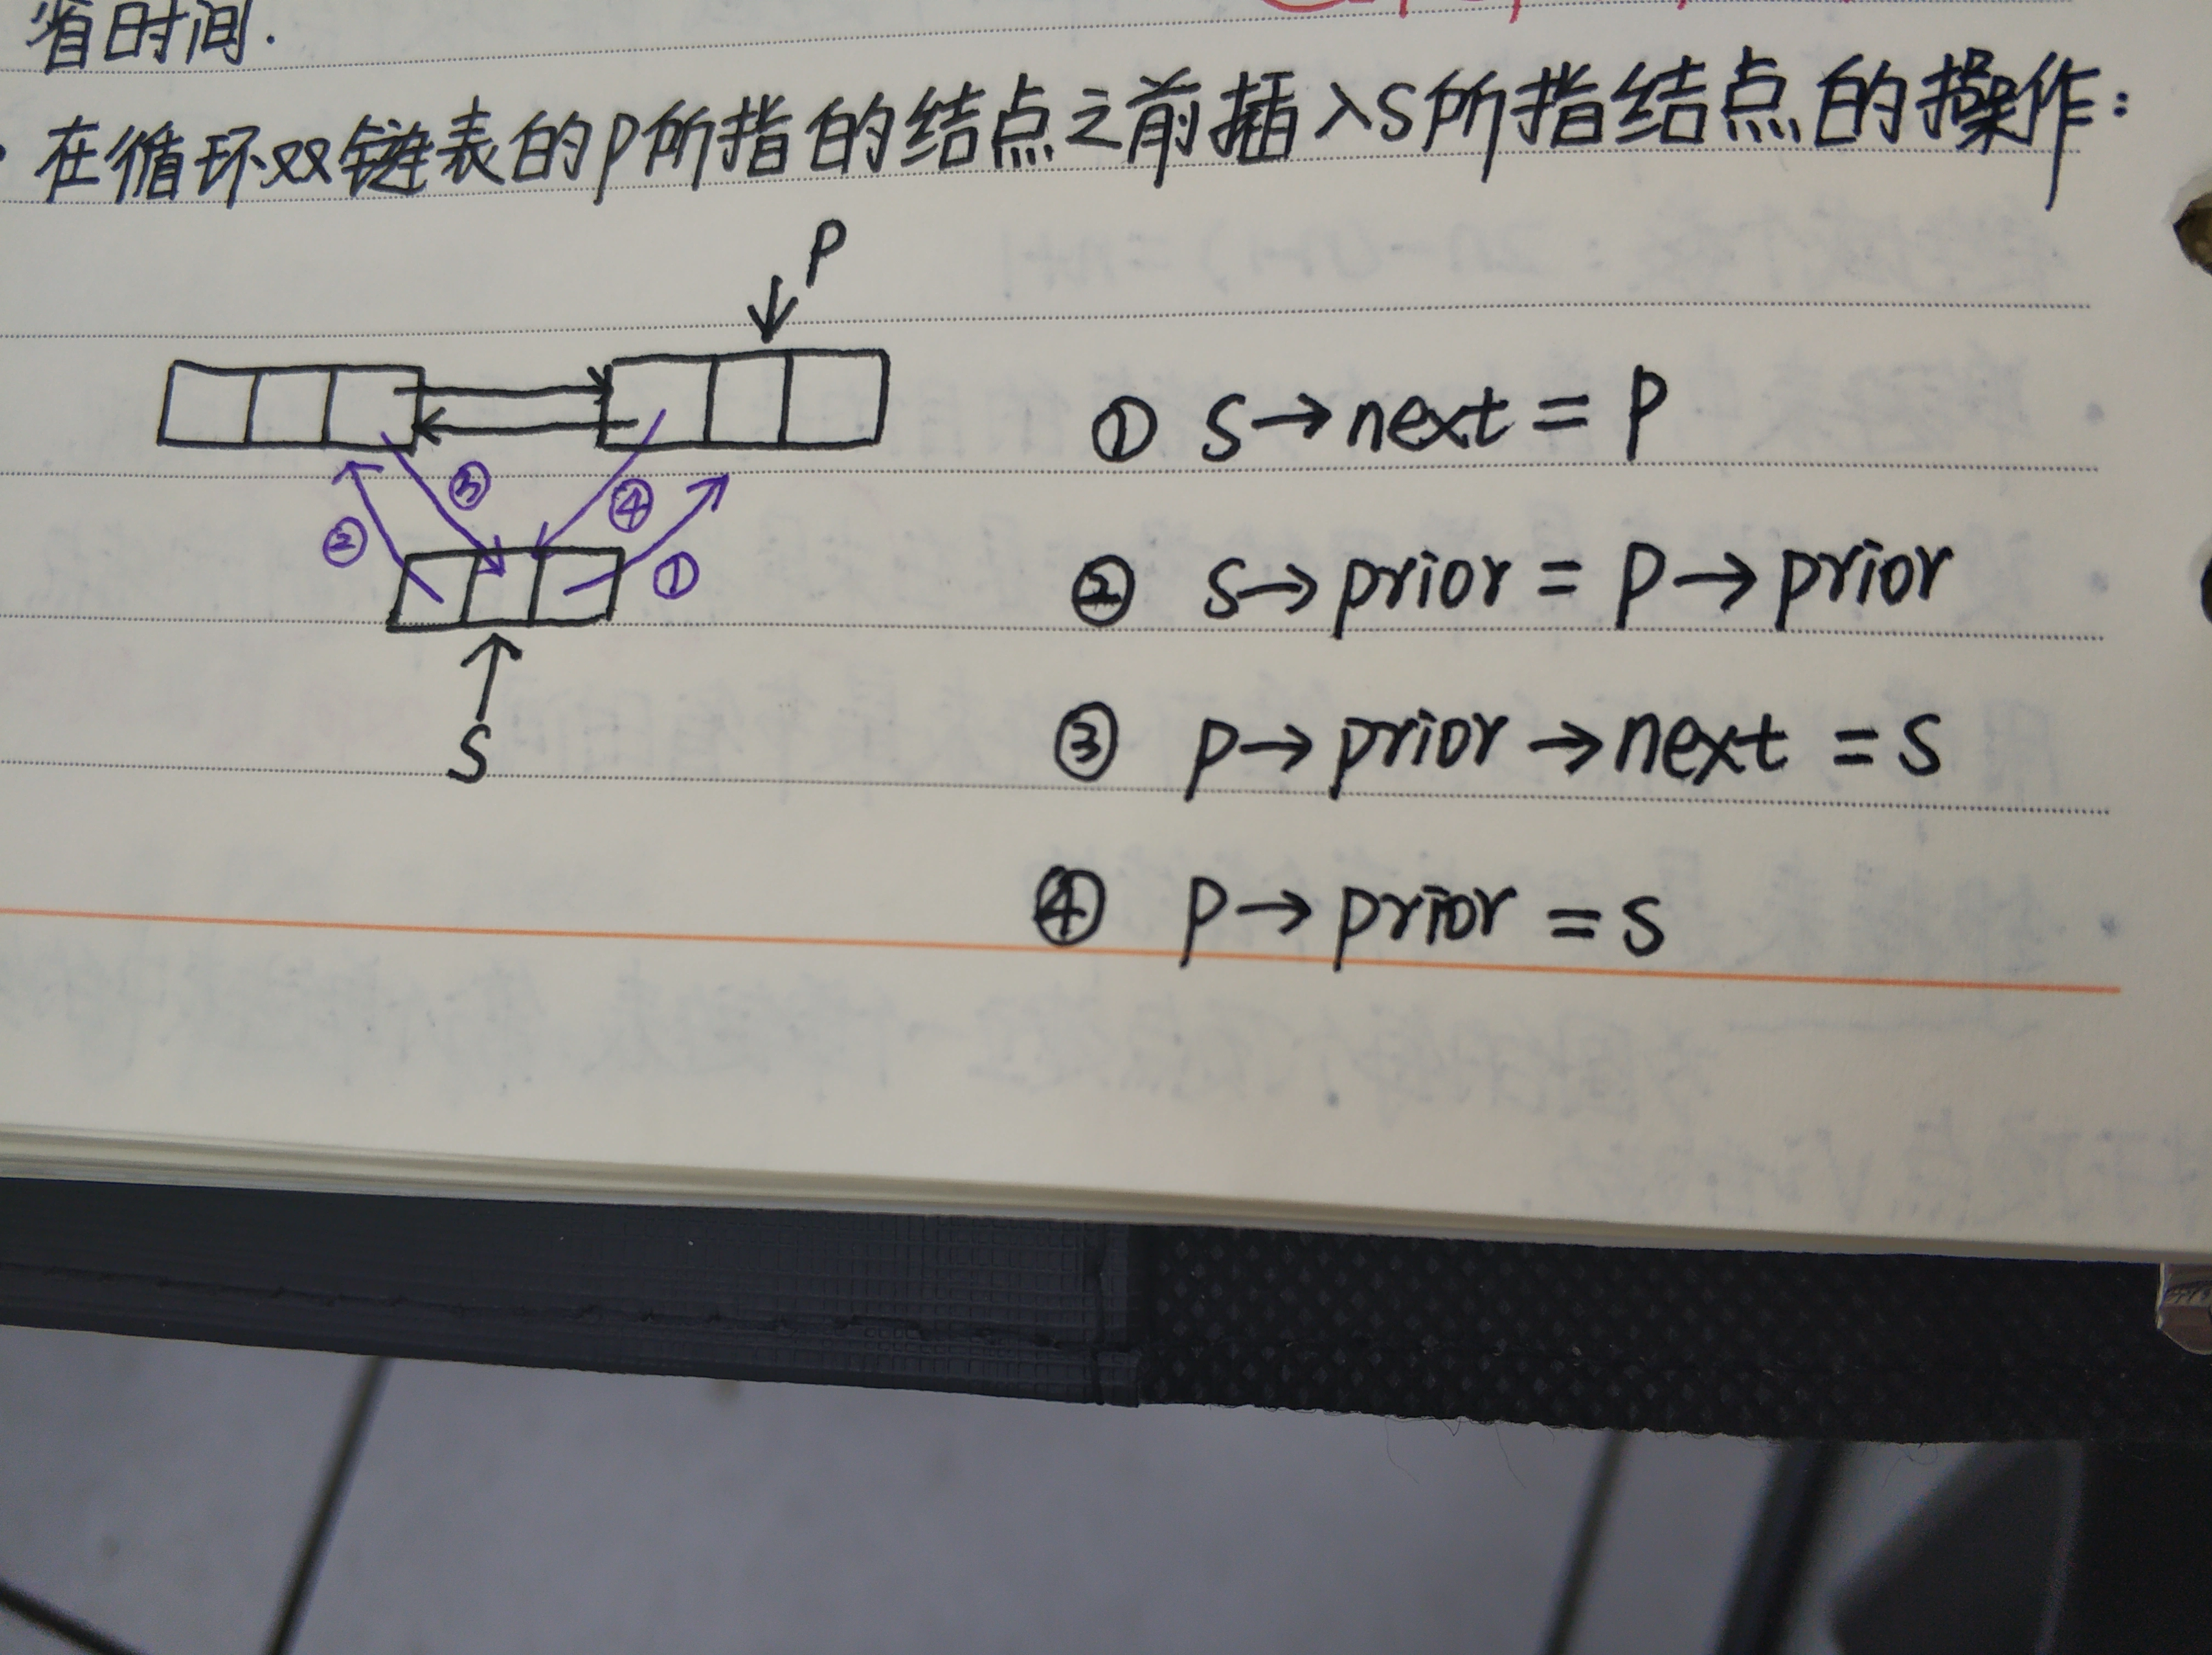 省时间.
· 在循环双链表的p所指的结点之前插入S所指结点的操作:
P
① S→next = P
③
④
②
①
② S→prior = P→prior
S
③ P→prior→next = S
④ P→prior = S